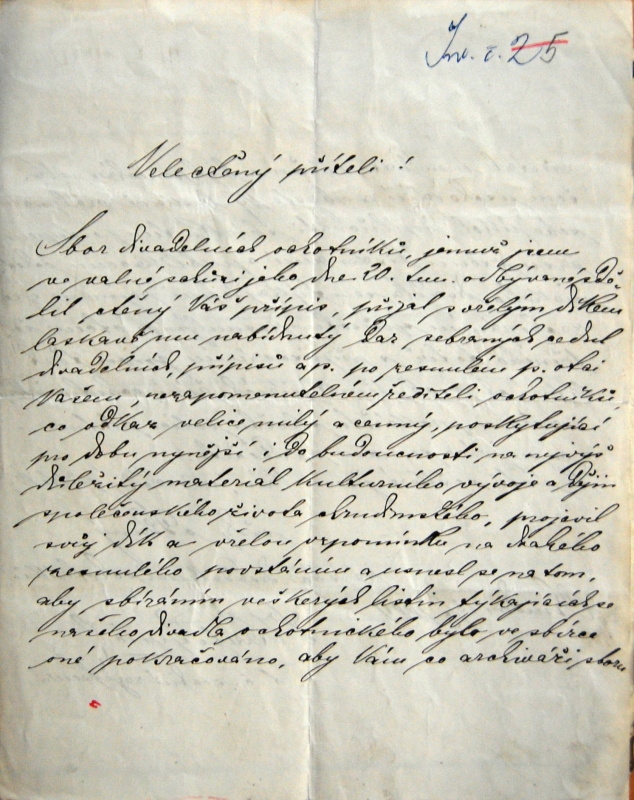 Inv. č. 25
Velectěný příteli!
Sbor divadelních ochotníků, jemuž jsem
ve valné schůzi jeho dne 20. t.m. odbývané sdě-
lil ctěný Váš přípis, přijal s vřelým díkem
laskavě mu nabídnutý dar sebraných cedul
divadelních, přípisů a p. po zesnulém p. otci
Vašem, nezapomenutelném řediteli ochotníků,
co odkaz velice milý a cenný, poskytující
pro dobu nynější i do budoucnosti na nejvýš
důležitý materiál kulturního vývoje a dějin
společenského života chrudimského, projevil
svůj dík a vřelou vzpomínku na drahého
zesnulého povstáním a usnesl se na tom,
aby sbíráním veškerých listin týkajících se
našeho divadla ochotnického bylo ve sbírce
oné pokračováno, aby Vám co archiváři sboru